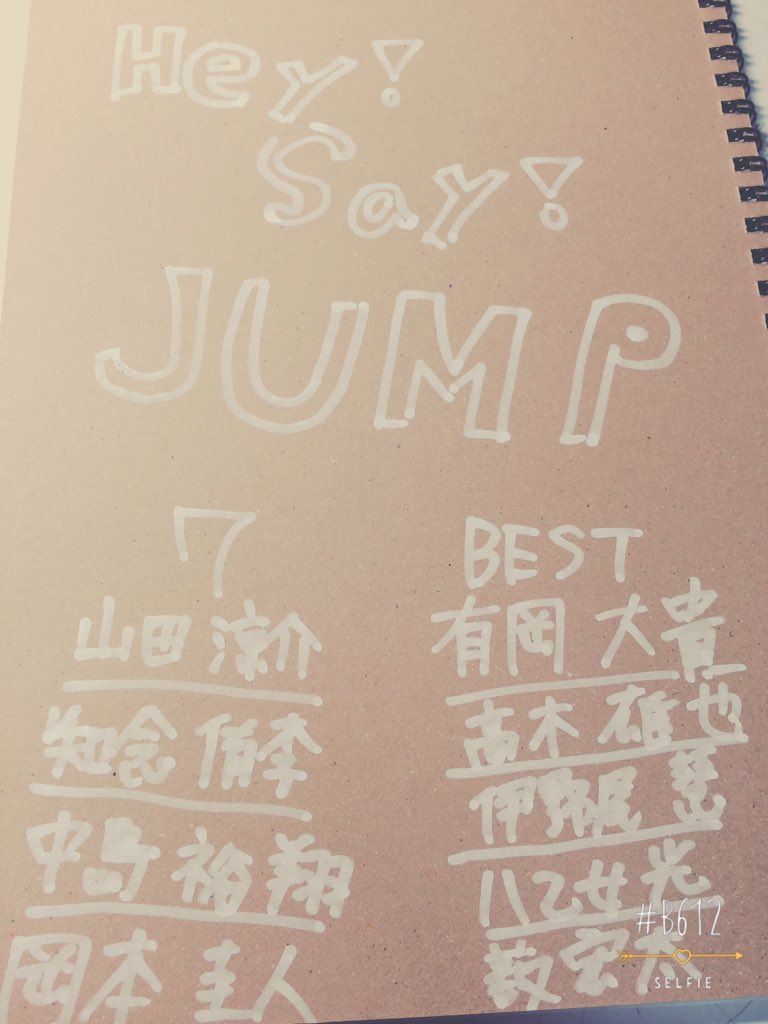 Hey!
Say!
JUMP
7
山田 涼介
知念 侑李
中島 裕翔
岡本 圭人
BEST
有岡 大貴
高木 雄也
伊野尾 慧
八乙女 光
薮 宏太
#B612
SELFIE